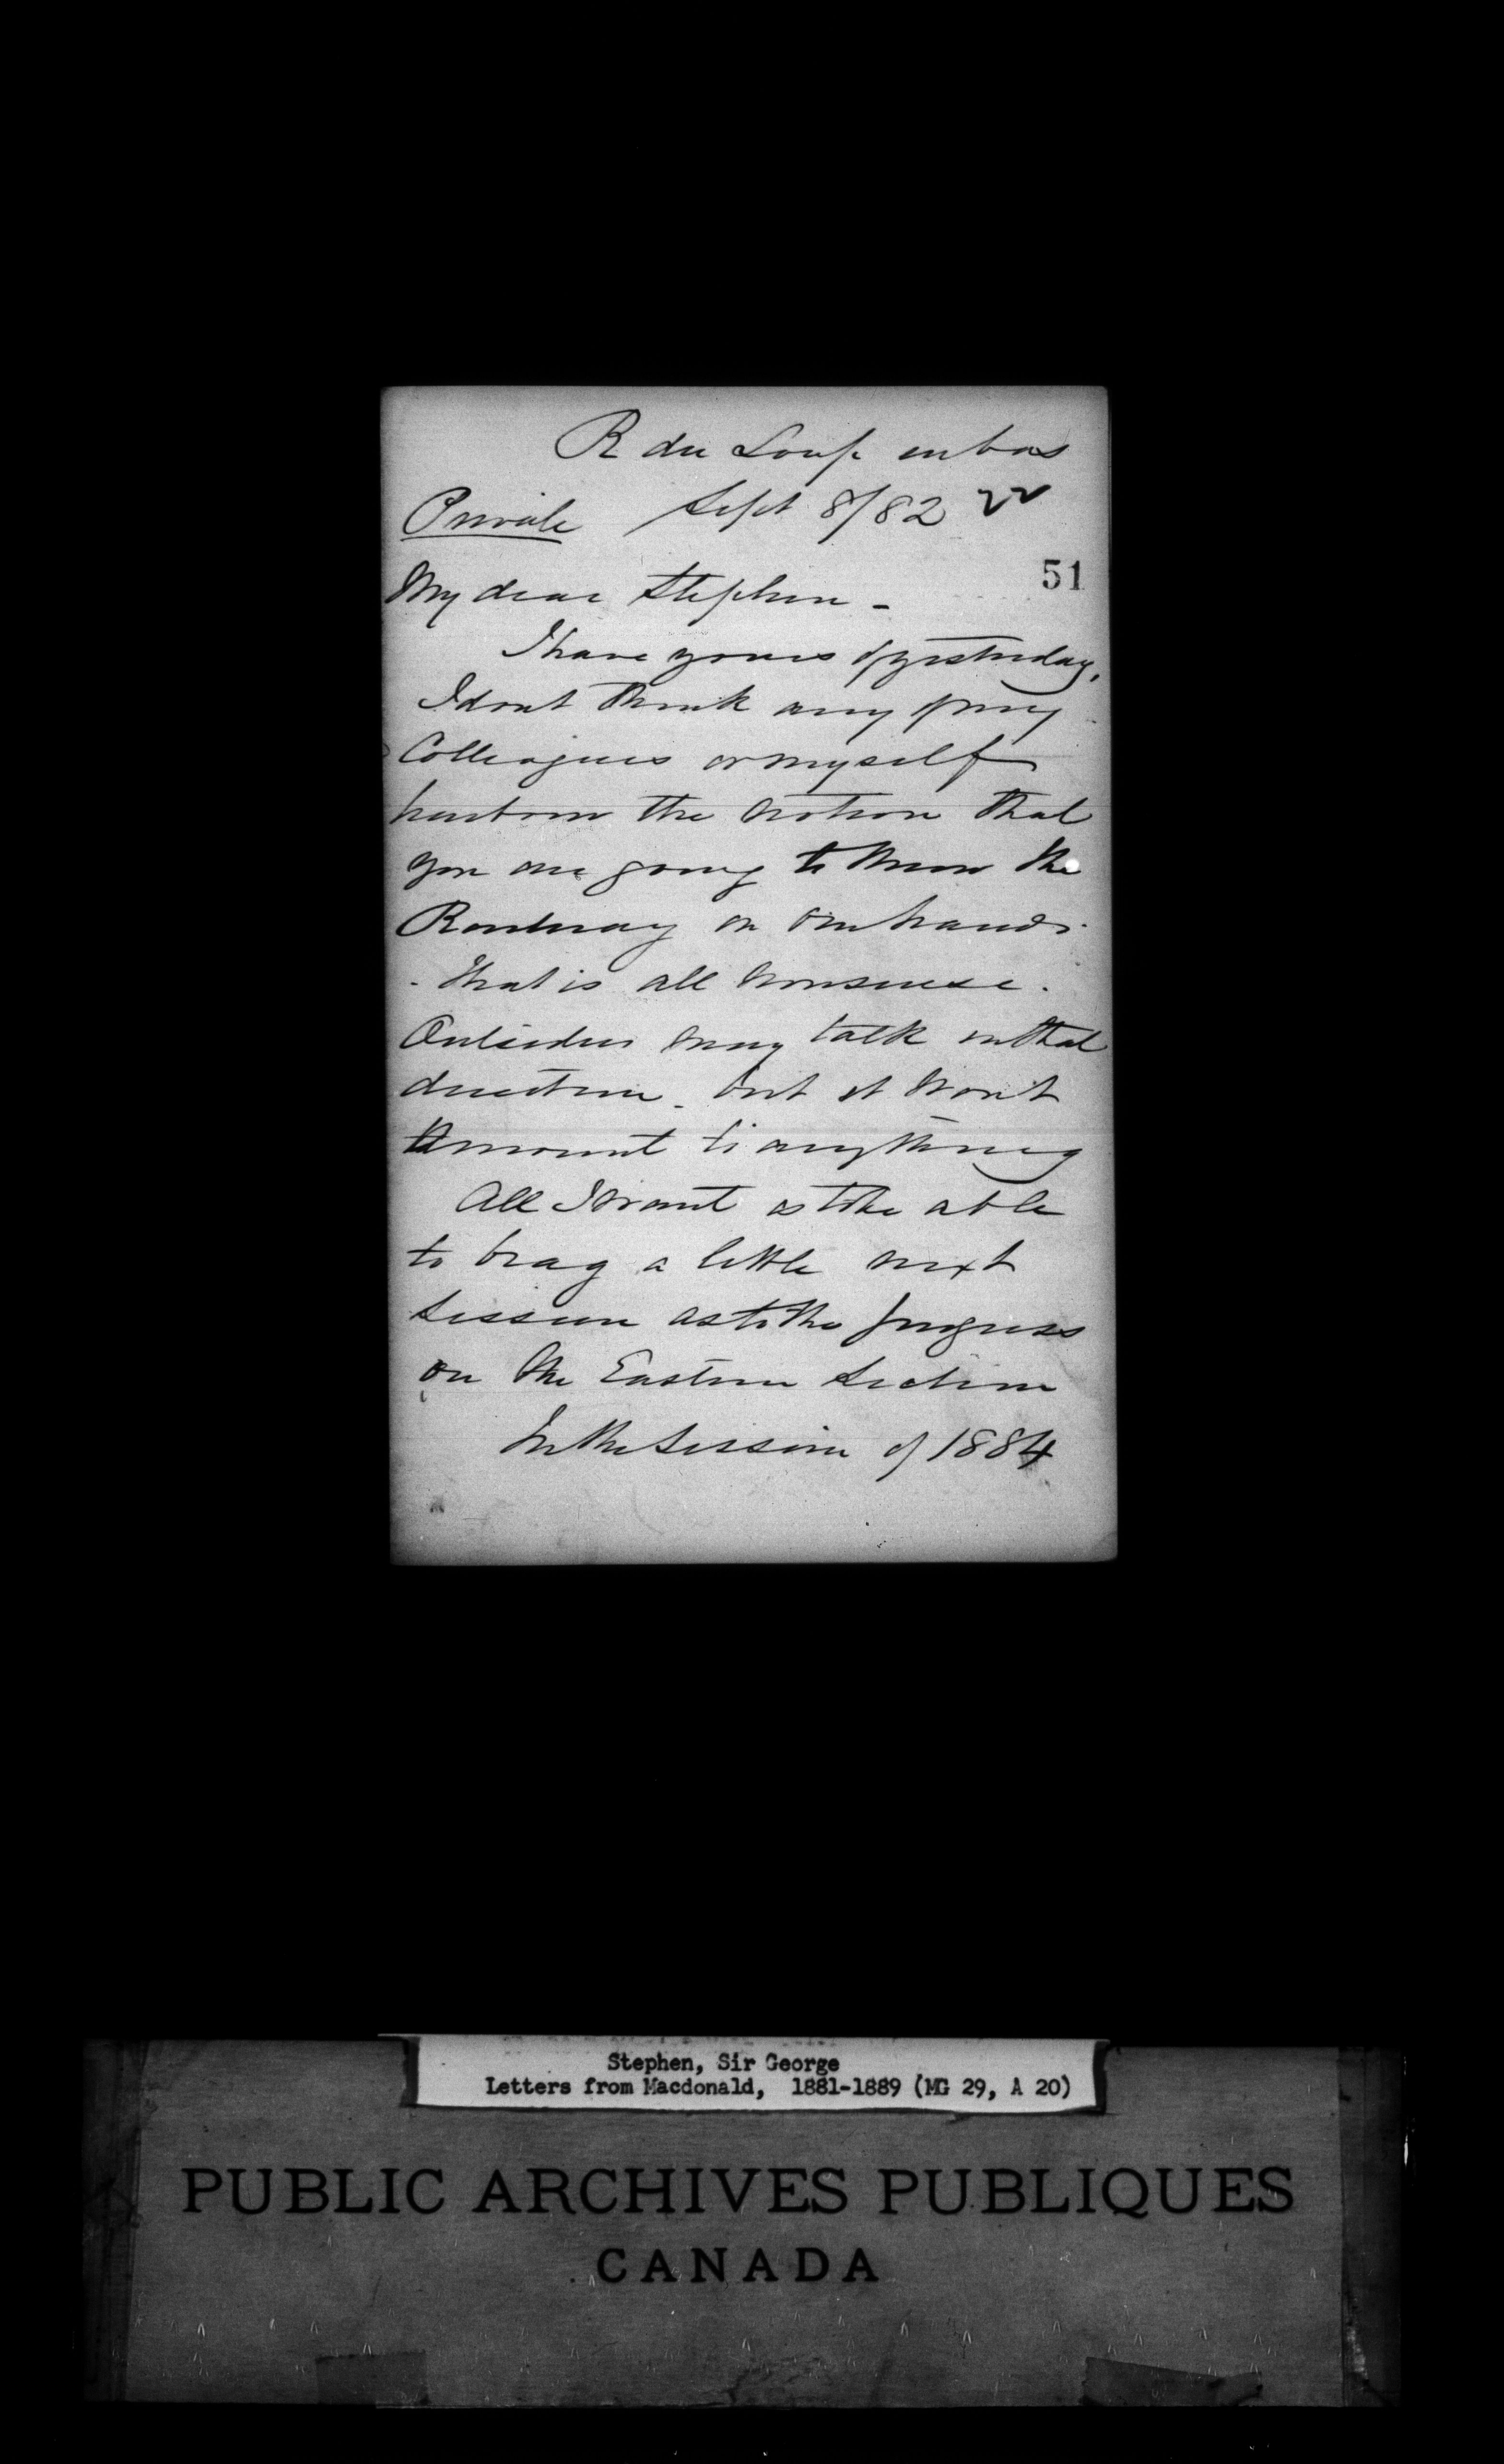 R du Loup en bas
Private Sept 8/82
51
My dear Stephen -
I have yours of yesterday,
I dont think any of my
Colleagues or myself
harbour the notion that
you are going to throw the
Roadway on our hands.
- That is all nonsense.
Outsiders may talk in that
direction - but it won't
amount to anything
All I want is to be able
to brag a little next
Session as to the progress
on the Eastern Section
In the Session of 1884
Stephen, Sir George
Letters from Macdonald, 1881-1889 (MG 29, A 20)
PUBLIC ARCHIVES PUBLIQUES
CANADA